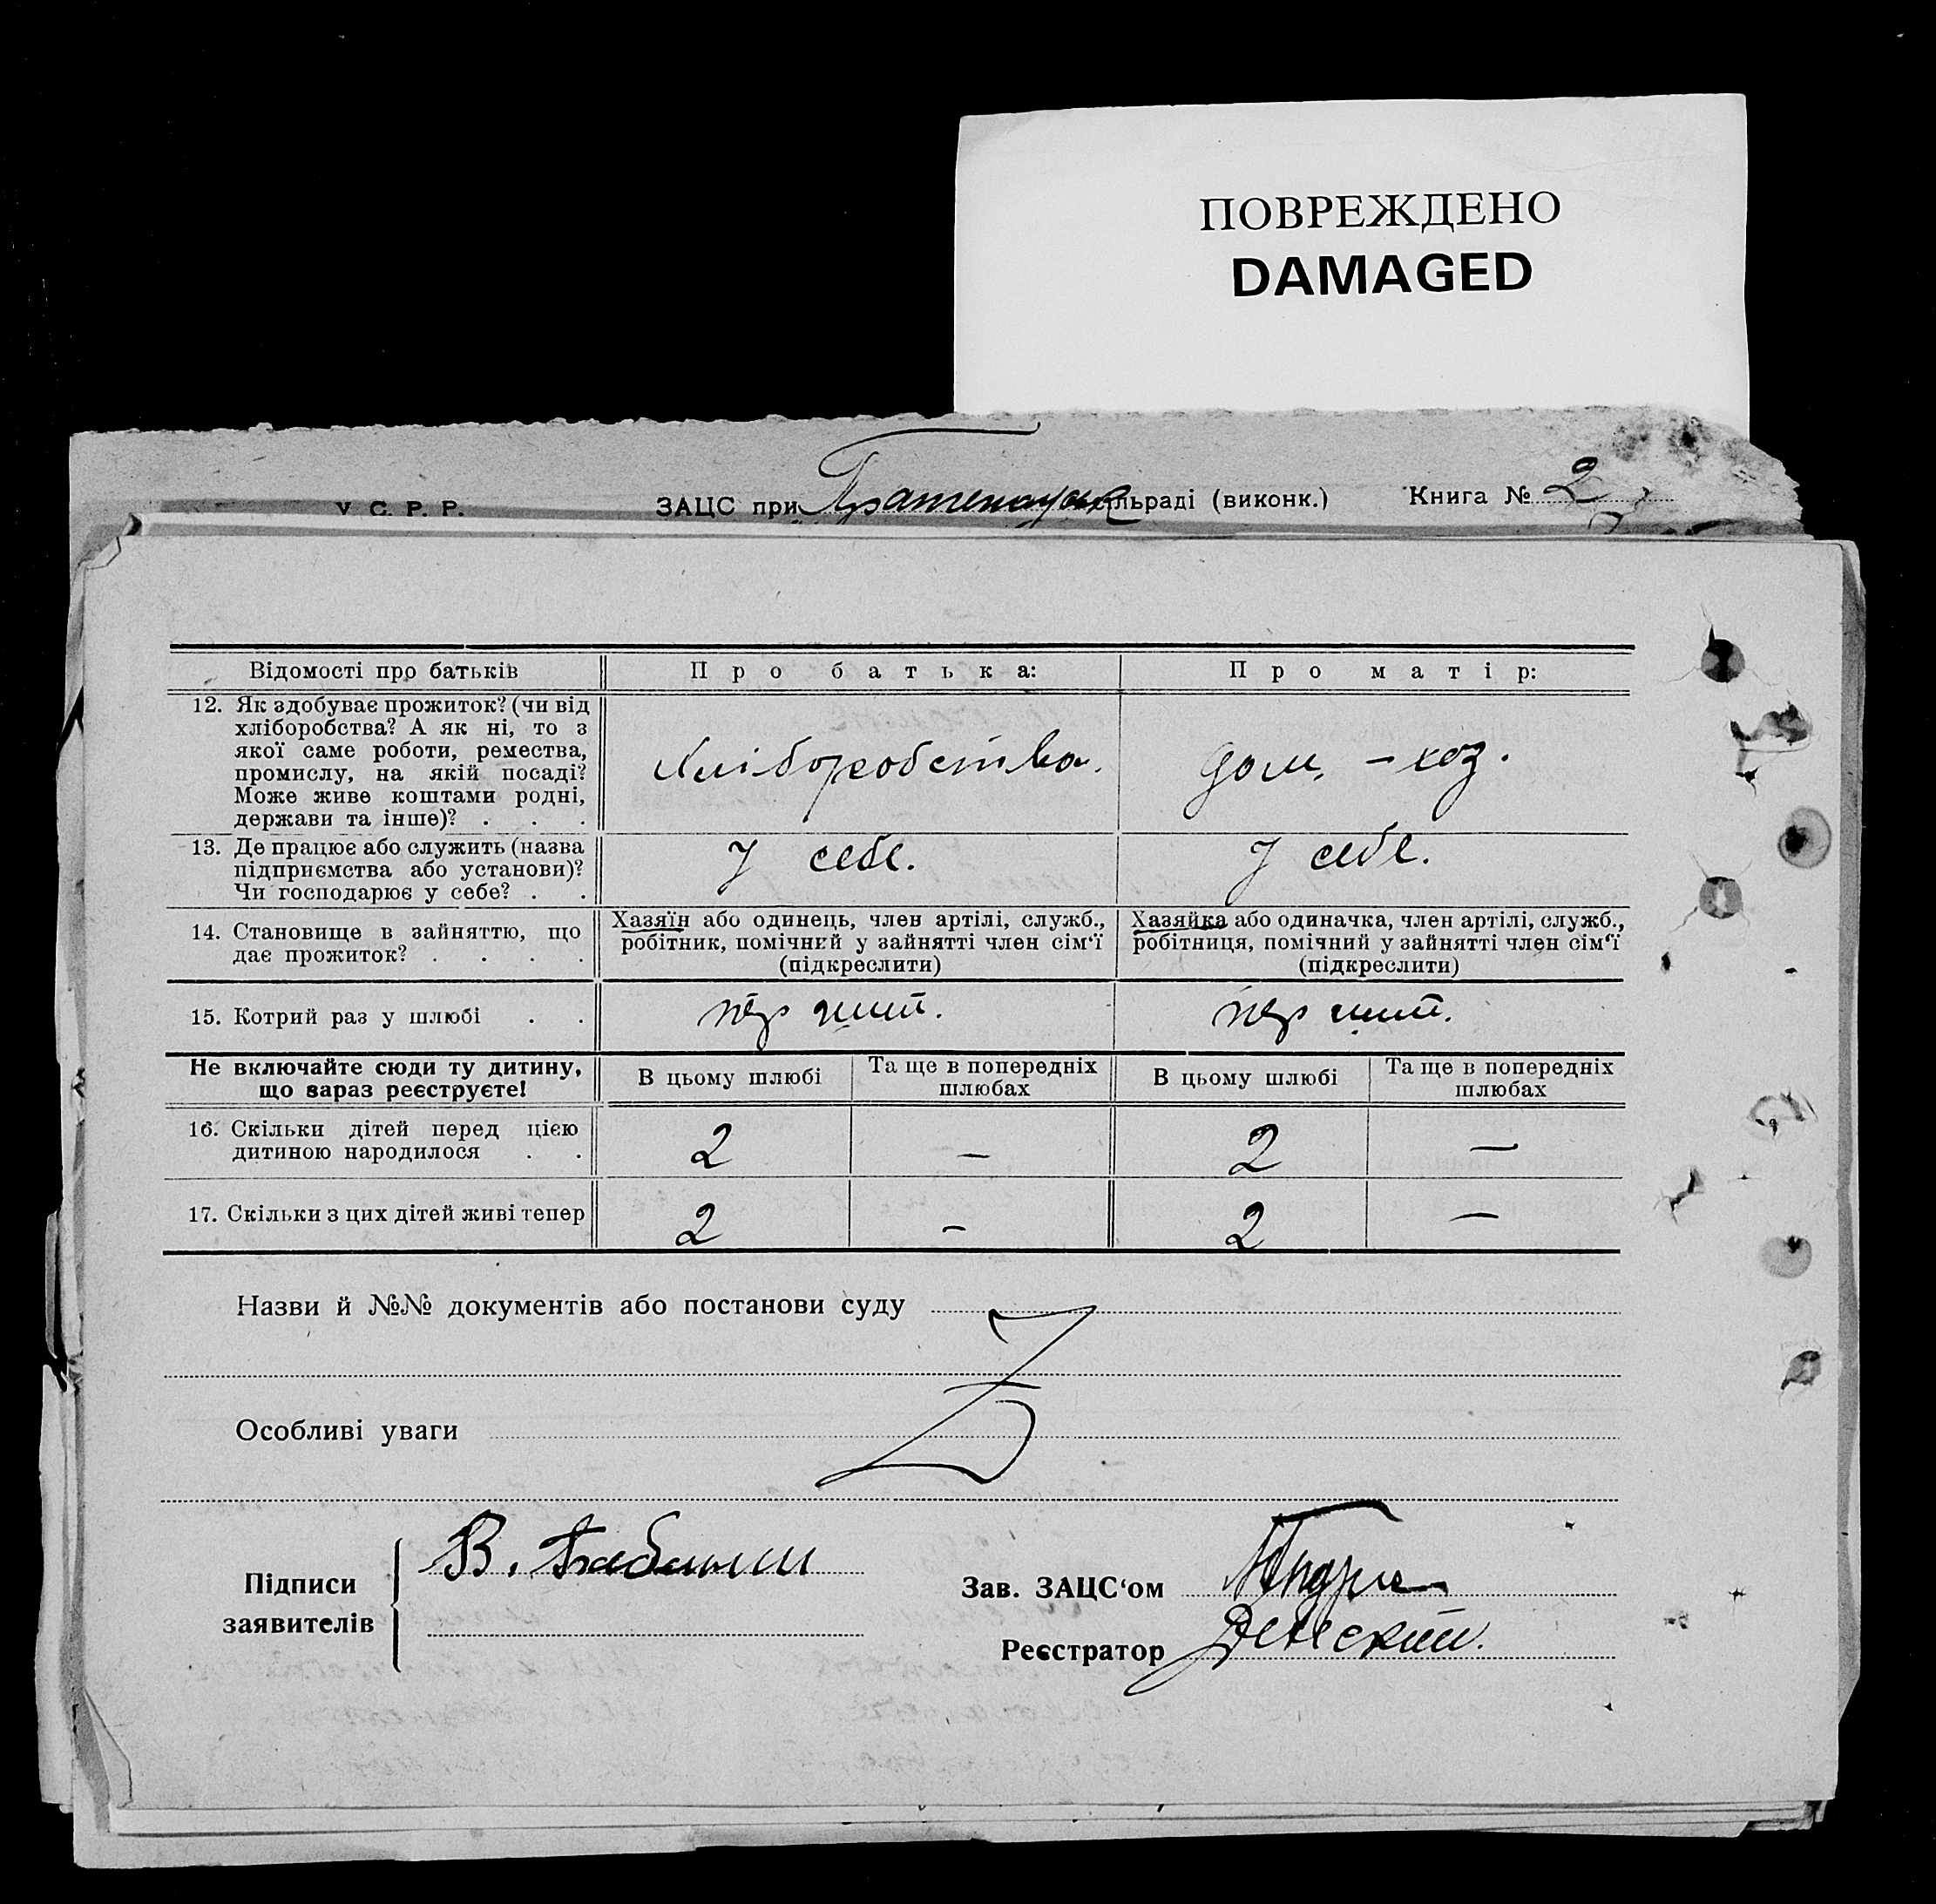 ПОВРЕЖДЕНО
DAMAGED
У. С. Р. Р. ЗАЦС при сільраді (виконк.) Книга № 2
Відомості про батьків Про батька: Про матір:
12. Як здобуває прожиток? (чи від
хліборобства? А як ні, то з
якої саме роботи, ремества,
промислу, на якій посаді?
Може живе коштами родні,
держави та інше)? . . .
Хліборобства. дом. – хоз.
13. Де працює або служить (назва
підприємства або установи)?
Чи господарює у себе? . .
У себе. У себе.
14. Становище в зайняттю, що
дає прожиток? . . . .
Хазяїн або одинець, член артілі, служб.,
робітник, помічний у зайнятті член сім'ї
(підкреслити)
Хазяйка або одиначка, член артілі, служб.,
робітниця, помічний у зайнятті член сім'ї
(підкреслити)
15. Котрий раз у шлюбі . . пер ший. пер ший.
Не включайте сюди ту дитину,
що зараз реєструєте!
В цьому шлюбі Та ще в попередніх
шлюбах
В цьому шлюбі Та ще в попередніх
шлюбах
16. Скільки дітей перед цією
дитиною народилося . .
2 – 2 –
17. Скільки з цих дітей живі тепер 2 – 2 –
Назви й №№ документів або постанови суду
Особливі уваги
Підписи
заявителів
В.
Зав. ЗАЦС'ом
Реєстратор